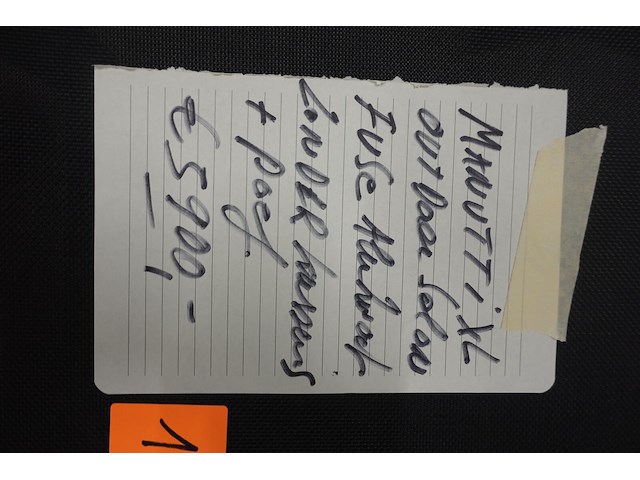 MANUTTI XL
outdoor Salon
Fuse Aluband.
ZONDER kussens
+ poef.
€ 5900,-
1